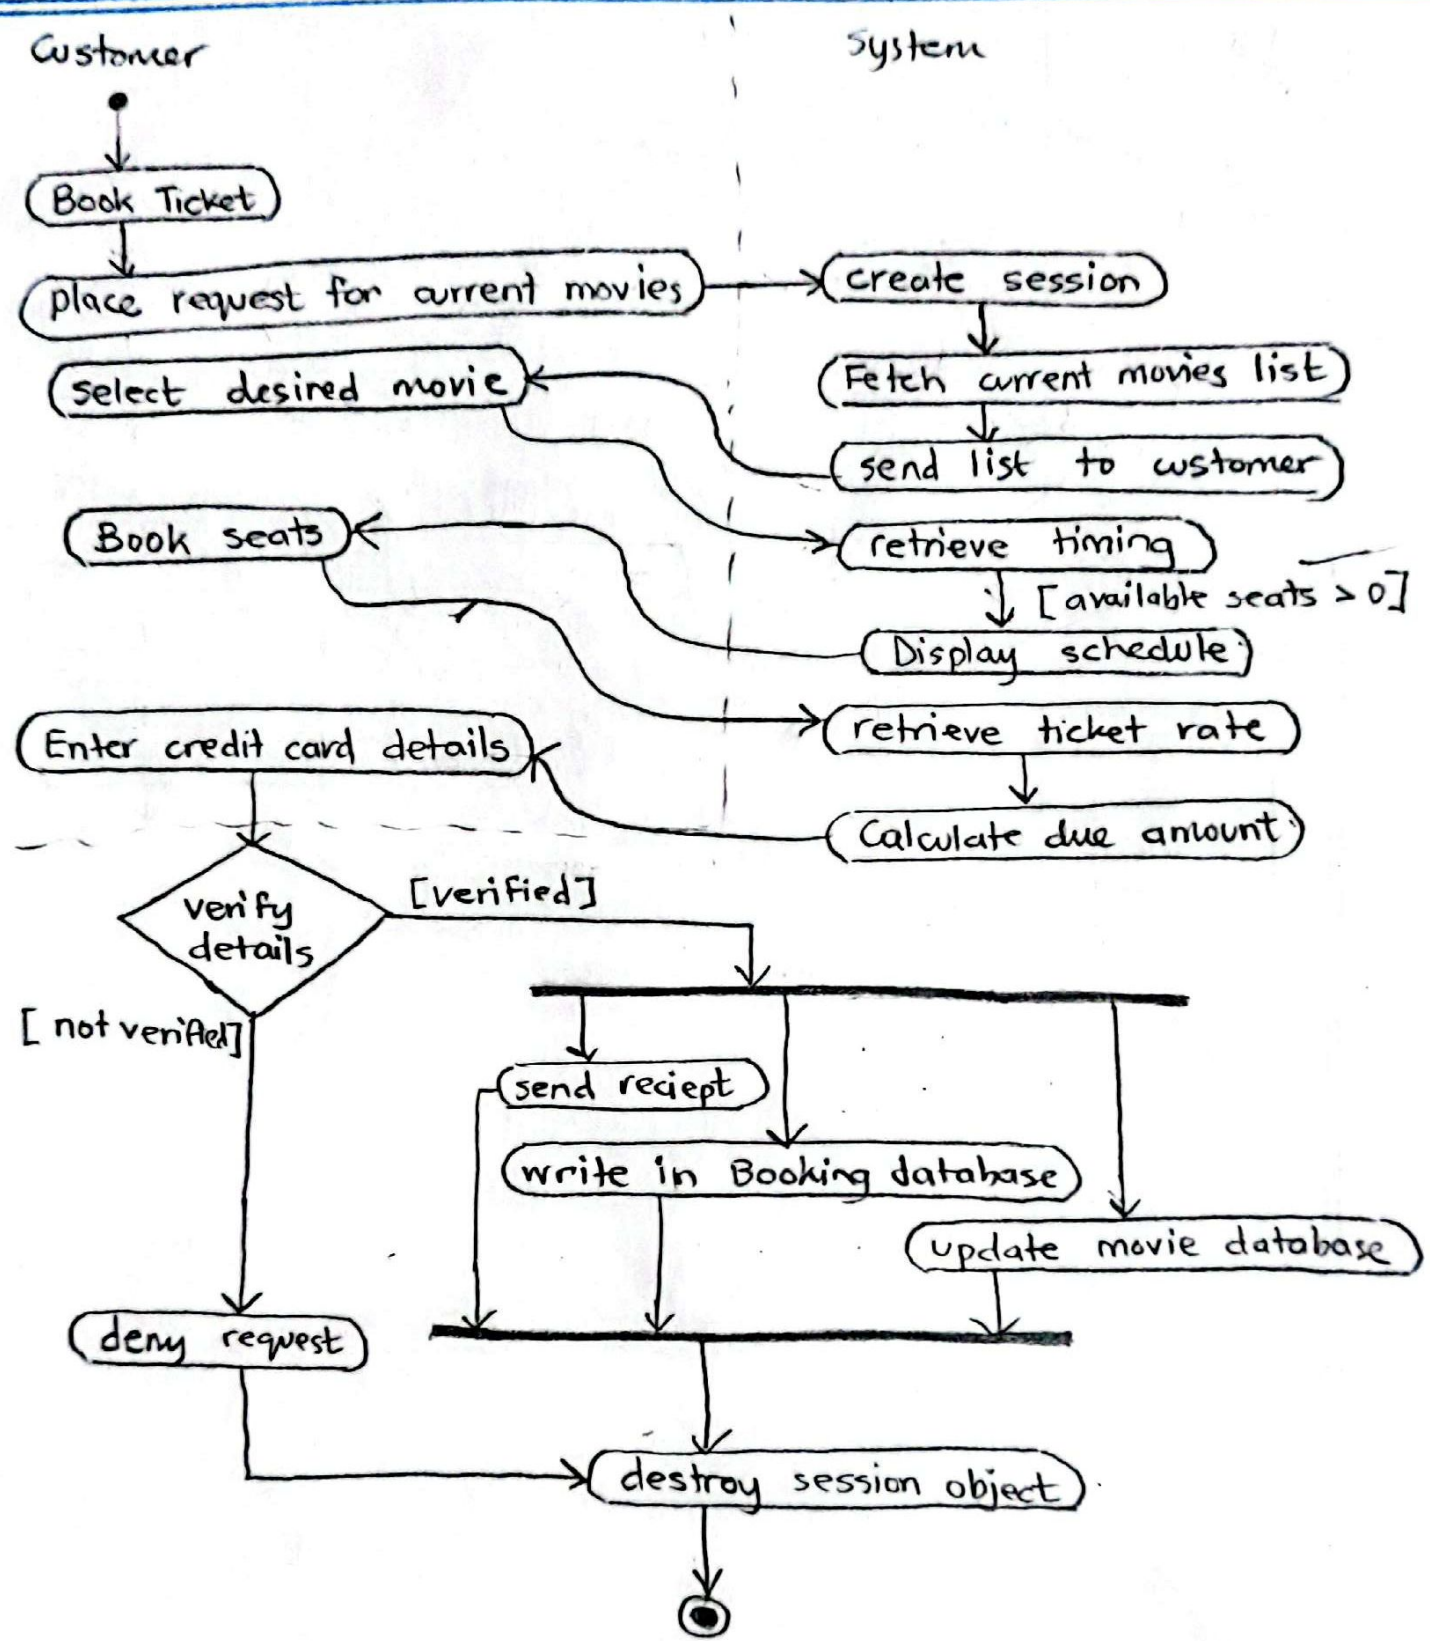 Customer
System
Book Ticket
place request for current movies
create session
select desired movie
Fetch current movies list
send list to customer
Book seats
retrieve timing
[available seats > 0]
Display schedule
Enter credit card details
retrieve ticket rate
Calculate due amount
verify
details
[verified]
[not verified]
send reciept
write in Booking database
update movie database
deny request
destroy session object